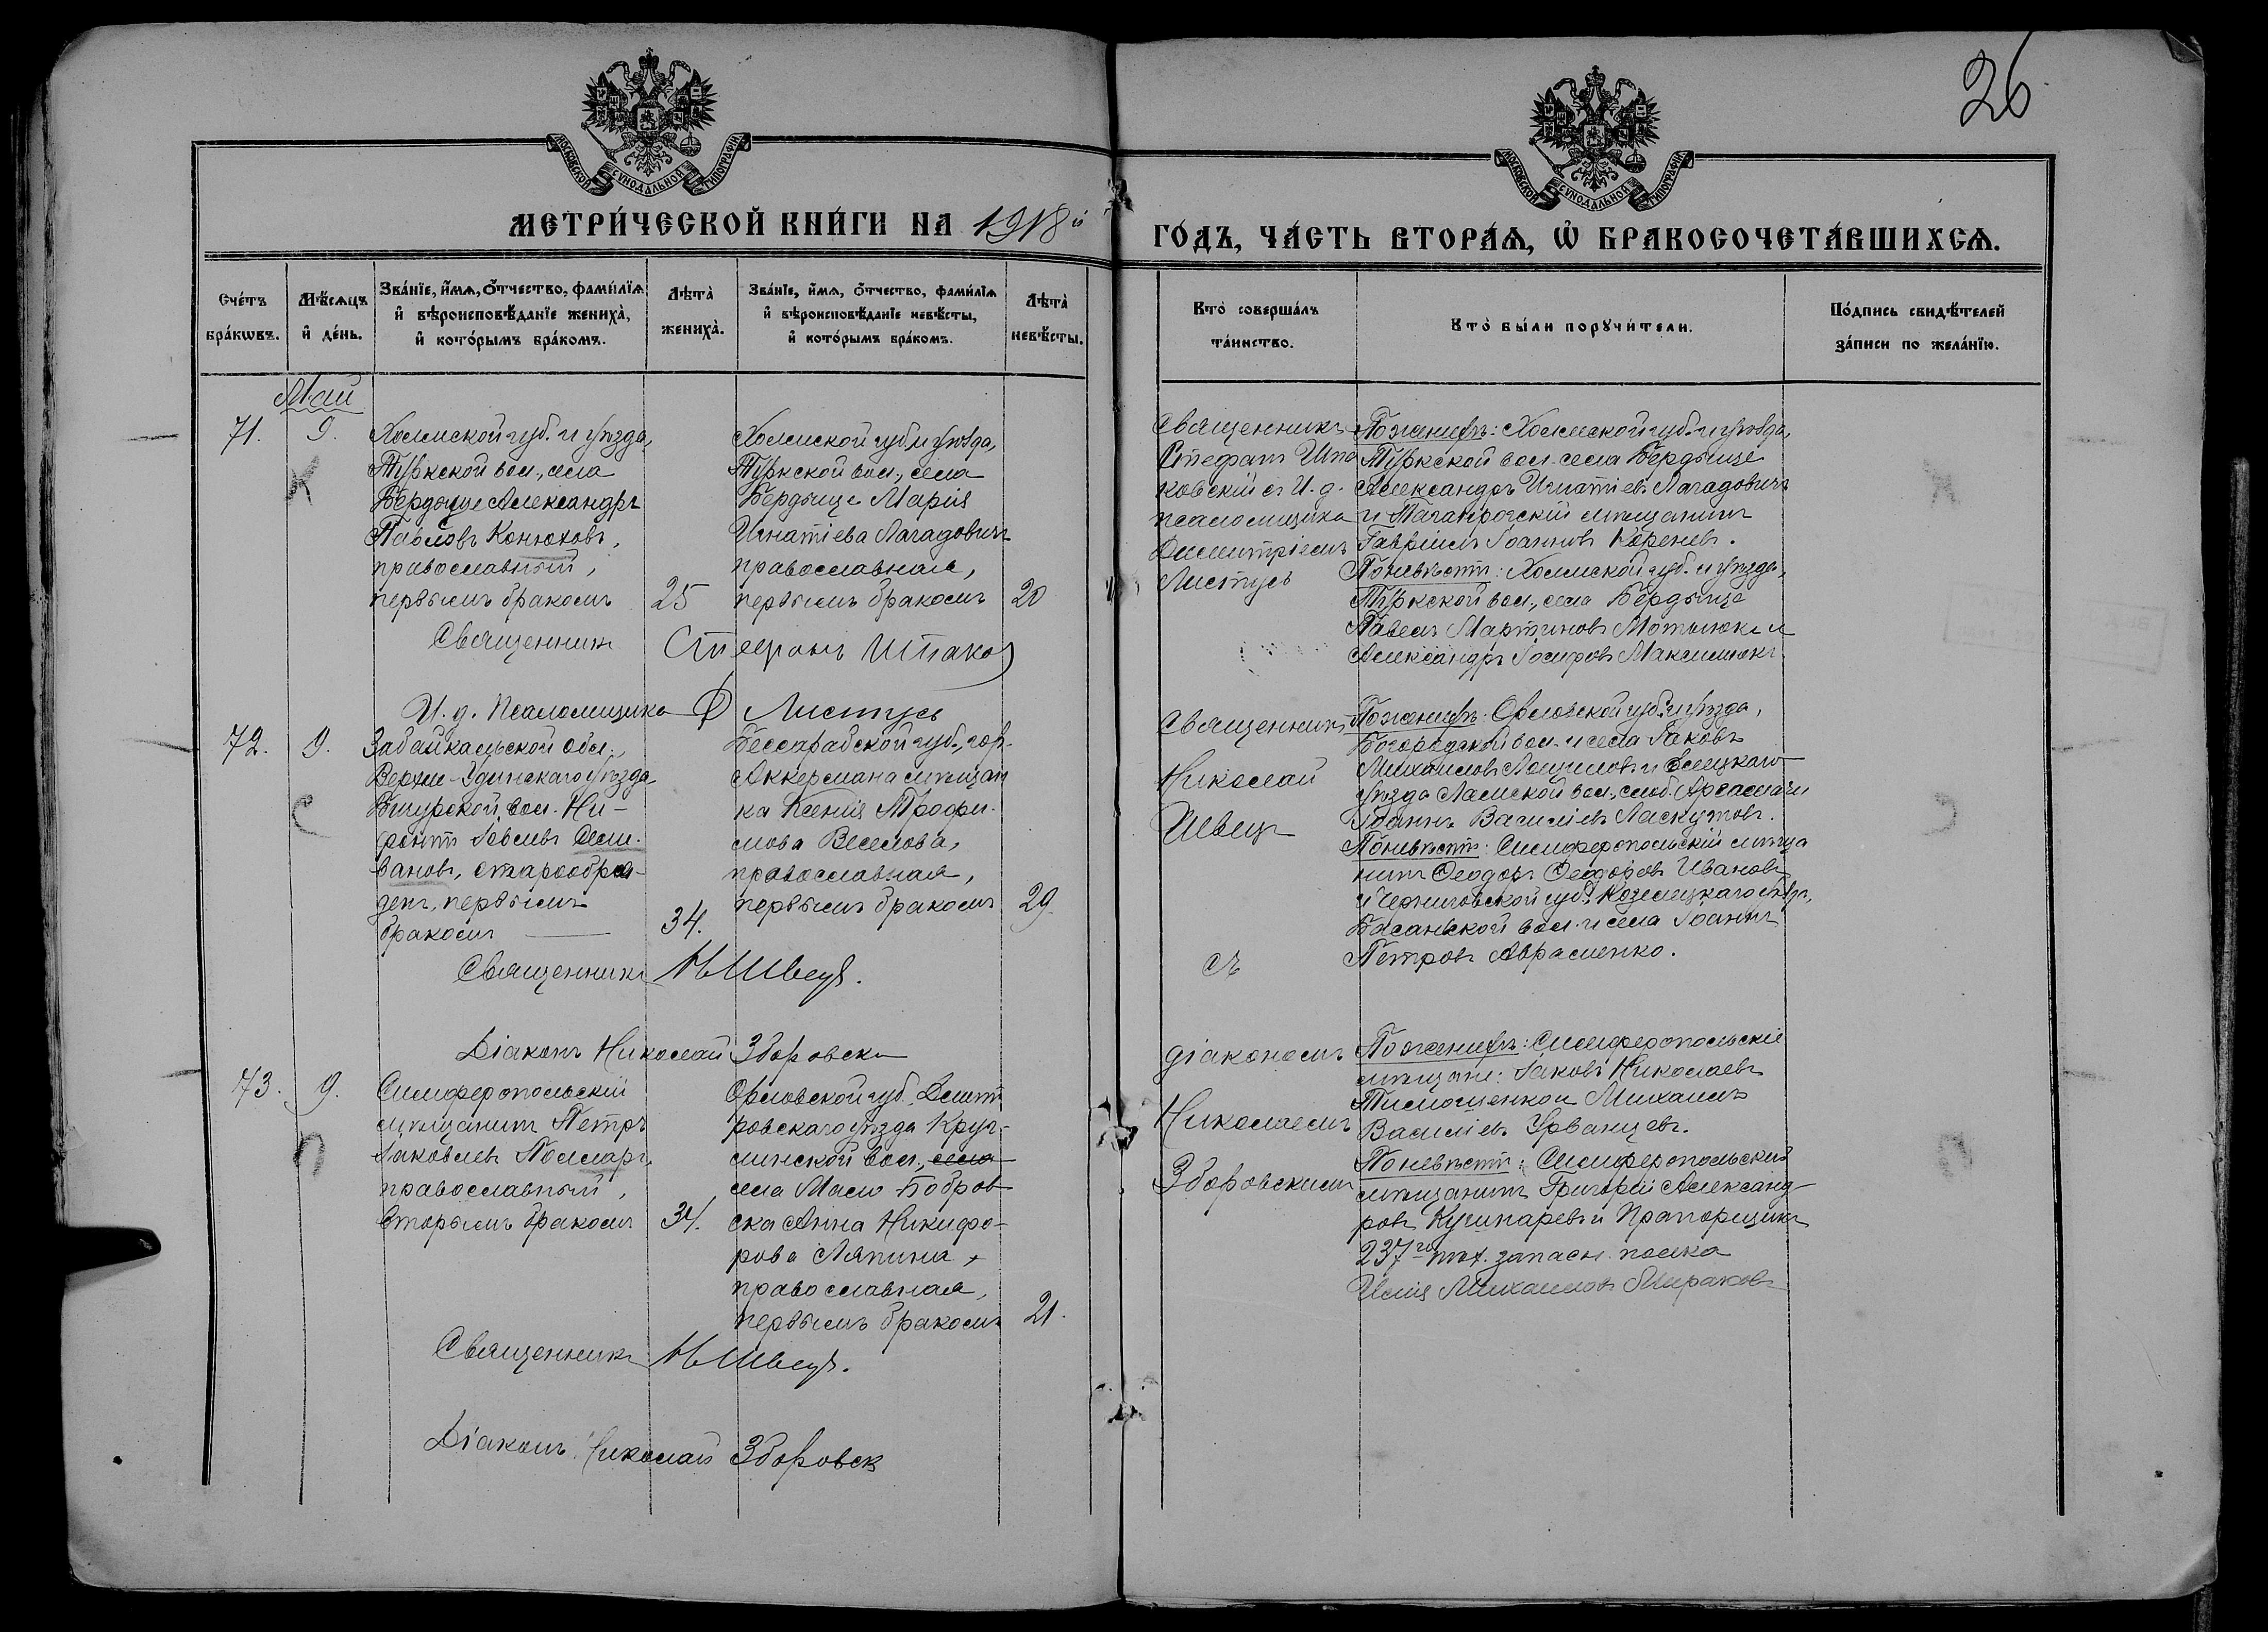 26
МОСКОВСКОЙ СѴНОДАЛЬНОЙ ТИПОГРАФІИ
МОСКОВСКОЙ СѴНОДАЛЬНОЙ ТИПОГРАФІИ
МЕТРИ́ЧЕСКОЙ КНИ́ГИ НА 1918й
ГО́ДЪ, ЧА́СТЬ ВТОРА́Ѧ, Ѽ БРАКОСОЧЕТА́ВШИХСѦ.
Сче́тъ
бра́кѡвъ.
Мѣ́сѧцъ
и҆ де́нь.
Зва́нїе, и҆́мѧ, ѻ҆́тчество, фами́лїѧ
и҆ вѣроисповѣ́данїе жениха̀,
и҆ кото́рымъ бра́комъ.
Лѣта̀
жениха̀.
Зва́нїе, и҆́мѧ, ѻ҆́тчество, фами́лїѧ
и҆ вѣроисповѣ́данїе невѣ́сты,
и҆ кото́рымъ бра́комъ.
Лѣта̀
невѣ́сты.
Кто̀ соверша́лъ
та́инство.
Кто̀ бы́ли порꙋчи́тели.
По́дпись свидѣ́телей
за́писи по жела́нїю.
Май
71.
9.
К
Холмской губ. и уѣзда,
Туркской вол., села
Бердыще Александръ
Павловъ Конюховъ,
православный,
первымъ бракомъ
25
Холмской губ. и уѣзда,
Туркской вол., села
Бердыще Марія
Игнатіева Лагадовичъ
православная,
первымъ бракомъ
20
Священникъ
Стефанъ Шпа
ковскій съ И. д.
псаломщика
Димитріемъ
Листусъ
По женихѣ: Холмской губ. и уѣзда,
Туркской вол. села Бердыще
Александръ Игнатіевъ Лагадовичъ
и Таганрогскій мѣщанинъ
Гавріилъ Іоанновъ Кореневъ.
По невѣстѣ: Холмской губ. и уѣзда,
Туркской вол., села Бердыще
Павелъ Мартиновъ Мотылюкъ и
Александръ Іосифовъ Максимюкъ
Священникъ Стефанъ Шпаков
И. д. Псаломщика Ф Листусъ
72.
9.
С
Забайкальской обл.,
Верхне-Удинскаго уѣзда
Бичурской вол. Ни-
фонтъ Іовлевъ Сели-
вановъ, старообря-
децъ, первымъ
бракомъ
34.
Бессарабской губ., гор.
Аккермана мѣщан
ка Ксенія Трофи-
мова Веселова,
православная,
первымъ бракомъ
29.
Священникъ
Николай
Швецъ
съ
По женихѣ: Орловской губ. и уѣзда,
Богородской вол. и села Іаковъ
Михаиловъ Лощиловъ и Елецкаго
уѣзда Ламской вол., слоб.
Іоаннъ Василіевъ Ласкутовъ.
По невѣстѣ: Симферопольскій мѣща
нинъ Ѳеодоръ Ѳеодоровъ Ивановъ
и Черниговской губ., Козелецкаго уѣзда,
Басанской вол. и села Іоаннъ
Петровъ Авраменко.
Священникъ Н Швецъ.
Діаконъ Николай Зборовски
73.
9.
П
Симферопольскій
мѣщанинъ Петръ
Іаковлевъ Поммаръ,
православный,
вторымъ бракомъ
34.
Орловской губ., Дмит
ровскаго уѣзда Круг-
линской вол., села
села Мало-Бобров
ска Анна Никифо-
рова Ляпина,
православная,
первымъ бракомъ
21.
діакономъ
Николаемъ
Зборовскимъ
По женихѣ: Симферопольскіе
мѣщане: Іаковъ Николаевъ
Тимошенко и Михаилъ
Василіевъ Урванцевъ.
По невѣстѣ: Симферопольскій
мѣщанинъ Григорій Александ-
ровъ Кушнаревъ и Прапорщикъ
237го пѣх. запасн. полка
Илія Михаиловъ
Священникъ Н Швецъ.
Діаконъ Николай Зборовск